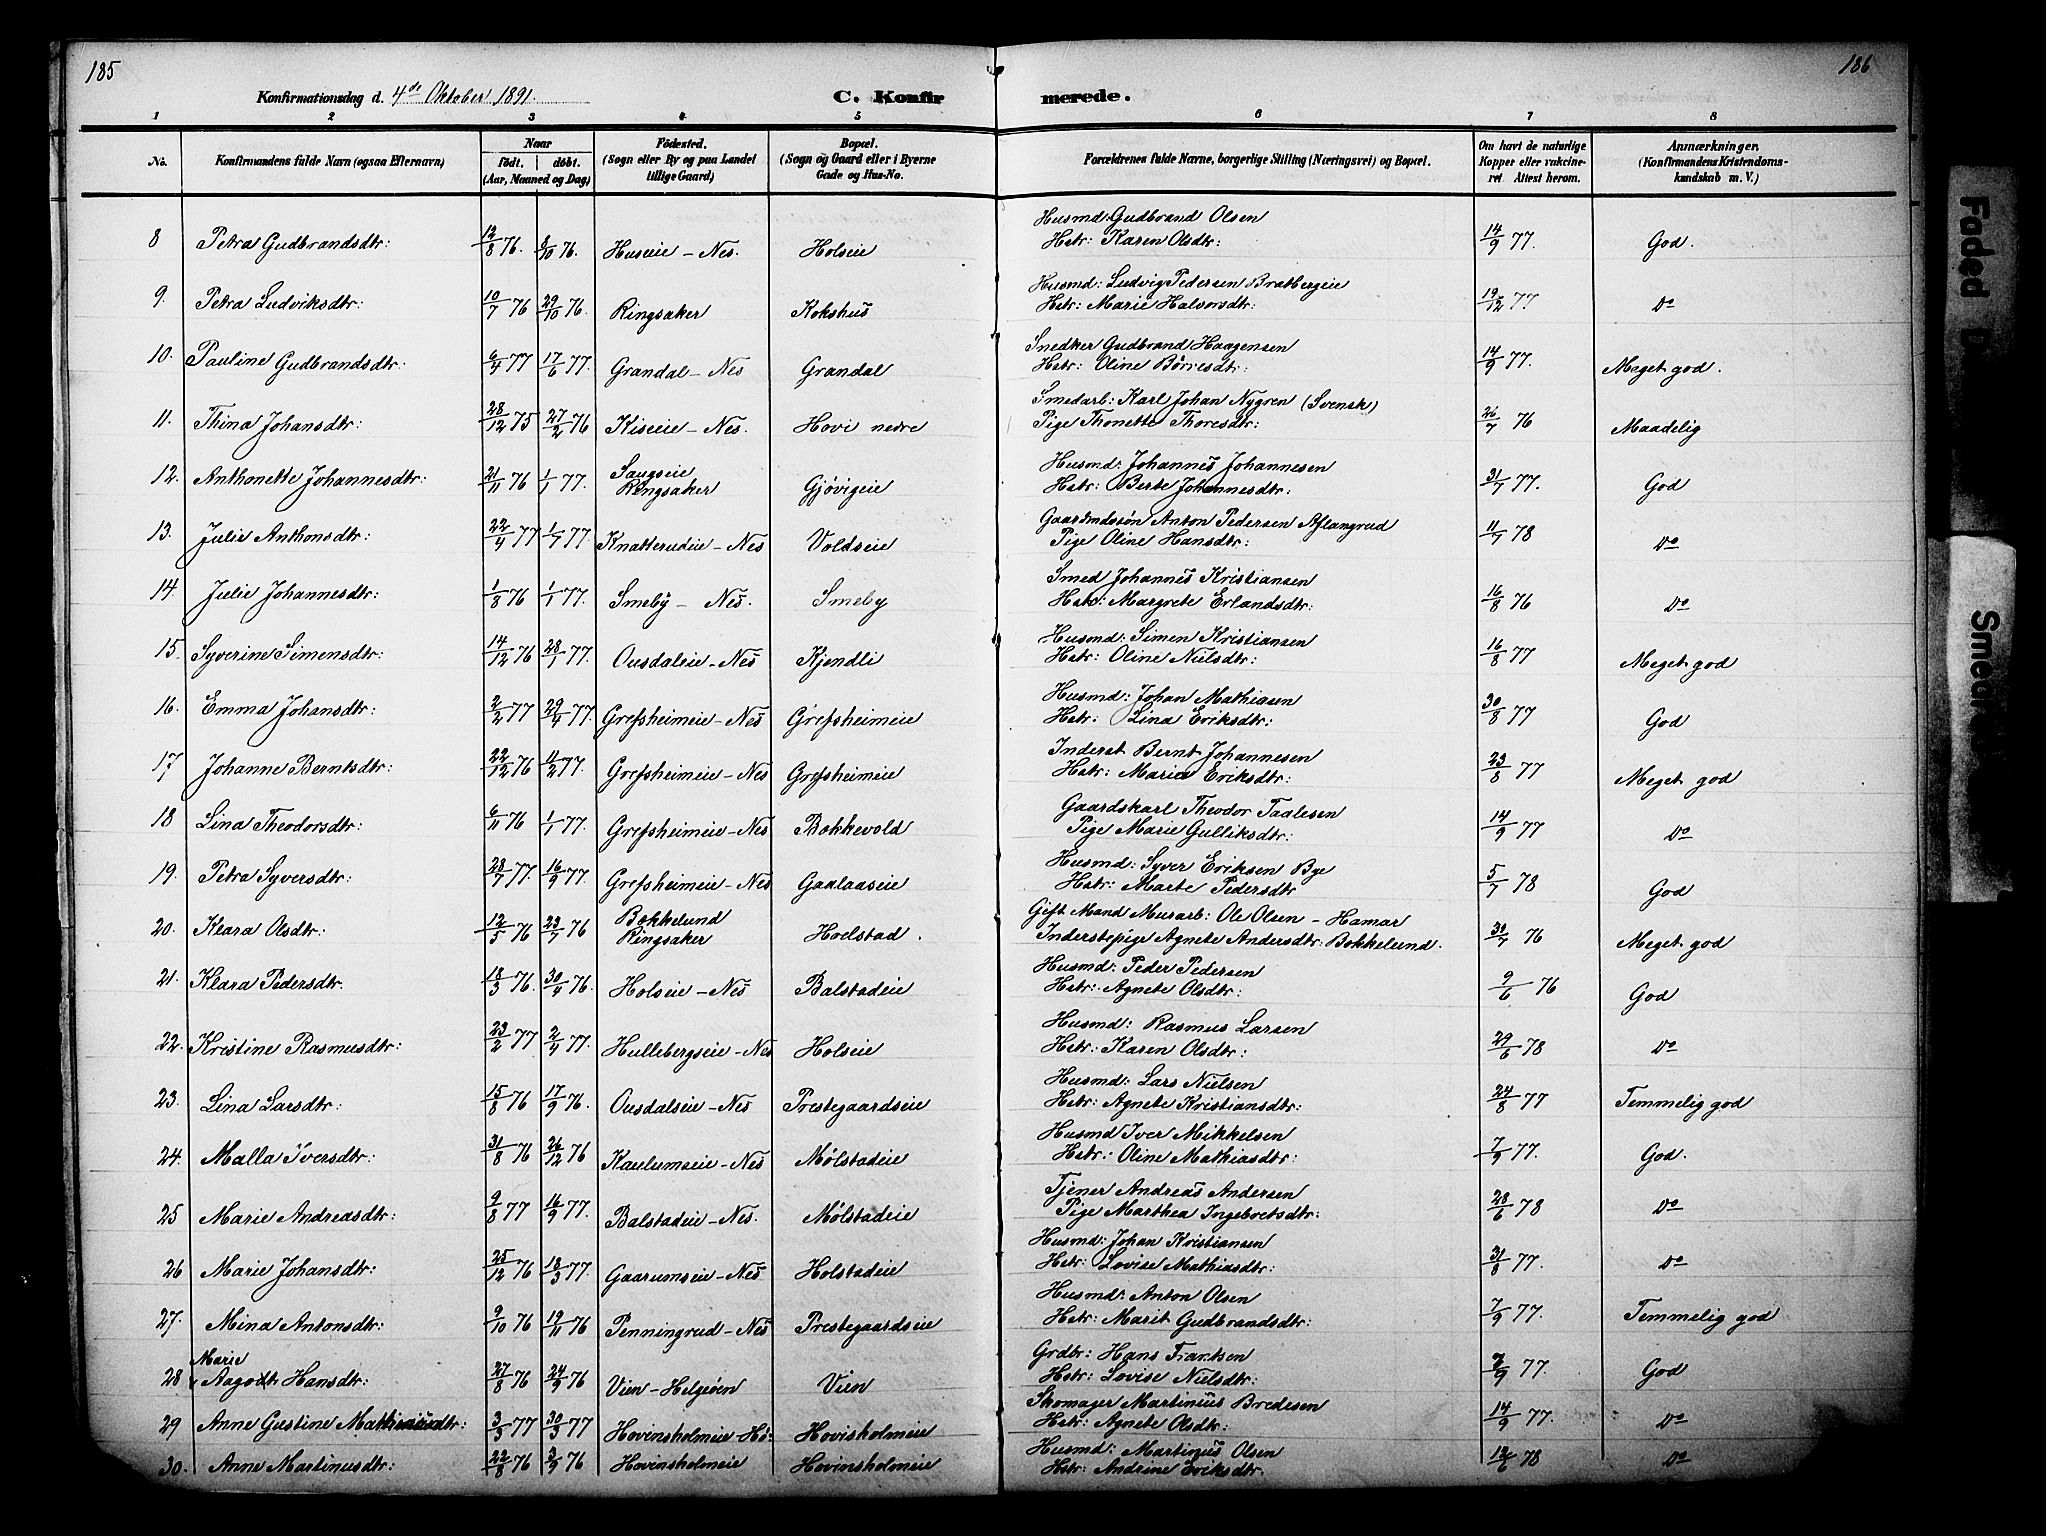 185
186
Konfirmationsdag d. 4de Oktober 1891.
C. Konfirmerede.
1 2 3 4 5 6 7 8
No. Konfirmandens fulde Navn (ogsaa Efternavn) Naar født. døbt. (Aar, Maaned og Dag) Fødested. (Sogn eller By og paa Landet tillige Gaard) Bopæl. (Sogn og Gaard eller i Byerne Gade og Hus-No.) Forældrenes fulde Navne, borgerlige Stilling (Næringsvei) og Bopæl. Om havt de naturlige Kopper eller vakcineret Attest herom. Anmærkninger. (Konfirmandens Kristendomskundskab m. V.)
8 Petra Gudbrandsdtr: 12/8 76. 8/10 76. Huseie - Nes. Holseie Husmd: Gudbrand Olsen
Hstr: Karen Olsdtr: 14/9 77. God.
9. Petra Ludviksdtr: 10/7 76 29/10 76. Ringsaker Kokshus Husmd: Ludvig Pedersen Bratbergeie
Hstr: Marie Halvorsdtr: 19/12 77 Do
10. Pauline Gudbrandsdtr: 6/4 77 17/6 77. Grandal - Nes Grandal Snedker Gudbrand Haagensen
Hstr: Oline Børresdtr: 14/9 77. Meget god.
11. Thina Johansdtr: 28/12 75 27/2 76 Kiseie - Nes. Hovi nedre Smedarb: Karl Johan Nygren (Svensk)
Pige Thonette Thoresdtr: 26/7 76 Maadelig
12. Anthonette Johannesdtr: 21/11 76 1/1 77. Saugseie Ringsaker Gjøvigeie Husmd: Johannes Johannesen
Hstr: Berte Johannesdtr: 31/7 77. God
13. Julie Anthonsdtr: 22/4 77 1/7 77. Knatterudeie - Nes Voldseie Gaardmdssøn Anton Pedersen Aflangrud
Pige Oline Hansdtr: 11/7 78 Do
14 Julie Johannesdtr: 1/8 76 1/1 77. Smeby - Nes. Smeby Smed Johannes Kristiansen
Hstr: Margrete Erlandsdtr: 16/8 76 Do
15. Syverine Simensdtr: 14/12 76 28/1 77. Ousdaleie - Nes Kjendli Husmd: Simen Kristiansen
Hstr: Oline Nielsdtr: 16/8 77 Meget god
16. Emma Johansdtr: 2/2 77 29/4 77. Grefsheimeie - Nes Grefsheimeie Husmd: Johan Mathiasen
Hstr: Lina Eriksdtr: 30/8 77 God
17. Johanne Berntsdtr: 22/12 76 11/2 77. Grefsheimeie - Nes Grefsheimeie Inderst Bernt Johannesen
Hstr: Maria Eriksdtr: 23/8 77 Meget god
18 Lina Theodorsdtr: 6/11 76 1/1 77. Grefsheimeie - Nes Bokkevold Gaardskarl Theodor Taalesen
Pige Marie Gulliksdtr: 14/9 77 Do
19. Petra Syversdtr: 28/7 77. 16/9 77. Grefsheimeie - Nes Gaalaaseie Husmd: Syver Eriksen Bye
Hstr: Marte Pedersdtr 5/7 78 God
20. Klara Olsdtr: 12/5 76 23/7 76 Bokkelund Ringsaker Hoelstad. Gift Mand Murarb: Ole Olsen - Hamar
Inderstepige Agnete Andersdtr: Bokkelund. 30/7 76 Meget god
21. Klara Pedersdtr. 18/3 76. 30/4 76. Holseie - Nes Balstadeie Husmd: Peder Pedersen
Hstr: Agnete Olsdtr: 9/6 76 God
22. Kristine Rasmusdtr: 23/2 77 2/4 77. Hullebergseie - Nes Holseie Husmd: Rasmus Larsen
Hstr: Karen Olsdtr: 29/6 78 Do
23. Lina Larsdtr: 15/8 76 17/9 76. Ousdalseie - Nes Prestegaardseie Husmd: Lars Nielsen
Hstr: Agnete Kristiansdtr: 24/8 77 Temmelig god
24. Malla Iversdtr: 31/8 76 26/12 76 Kaulumseie - Nes Mølstadeie Husmd Iver Mikkelsen
Hstr: Oline Mathiasdtr: 7/9 77. God.
25 Marie Andreasdtr: 9/8 77 16/9 77. Balstadeie - Nes. Mølstadeie Tjener Andreas Andersen
Pige Marthea Ingebretsdtr: 28/6 78 Do
26 Marie Johansdtr: 25/12 76 18/3 77. Gaarumseie - Nes Holstadeie Husmd: Johan Kristiansen
Hstr: Lovise Mathiasdtr: 31/8 77. Do
27. Mina Antonsdtr: 9/10 76 19/11 76 Penningrud - Nes Prestegaardseie Husmd: Anton Olsen
Hstr: Marit Gudbrandsdtr: 7/9 77. Temmelig god
28 Marie Aagodtr Hansdtr: 27/8 76 24/9 76 Vien - Helgøen Vien Grdbr: Hans Frantsen
Hstr: Lovise Nielsdtr: 7/9 77. God
29 Anne Gustine Mathiasdtr: 3/3 77 30/3 77 Hovinsholmeie - Hö: Hovisholmeie Skomager Martinius Bredesen
Hstr: Agnete Olsdtr: 14/9 77. Do
30. Anne Martinusdtr: 22/8 76 3/9 76 Hovinsholmeie Hovinsholmeie Husmd: Martinus Olsen
Hstr: Andrine Eriksdtr. 12/6 78 Do
Faded